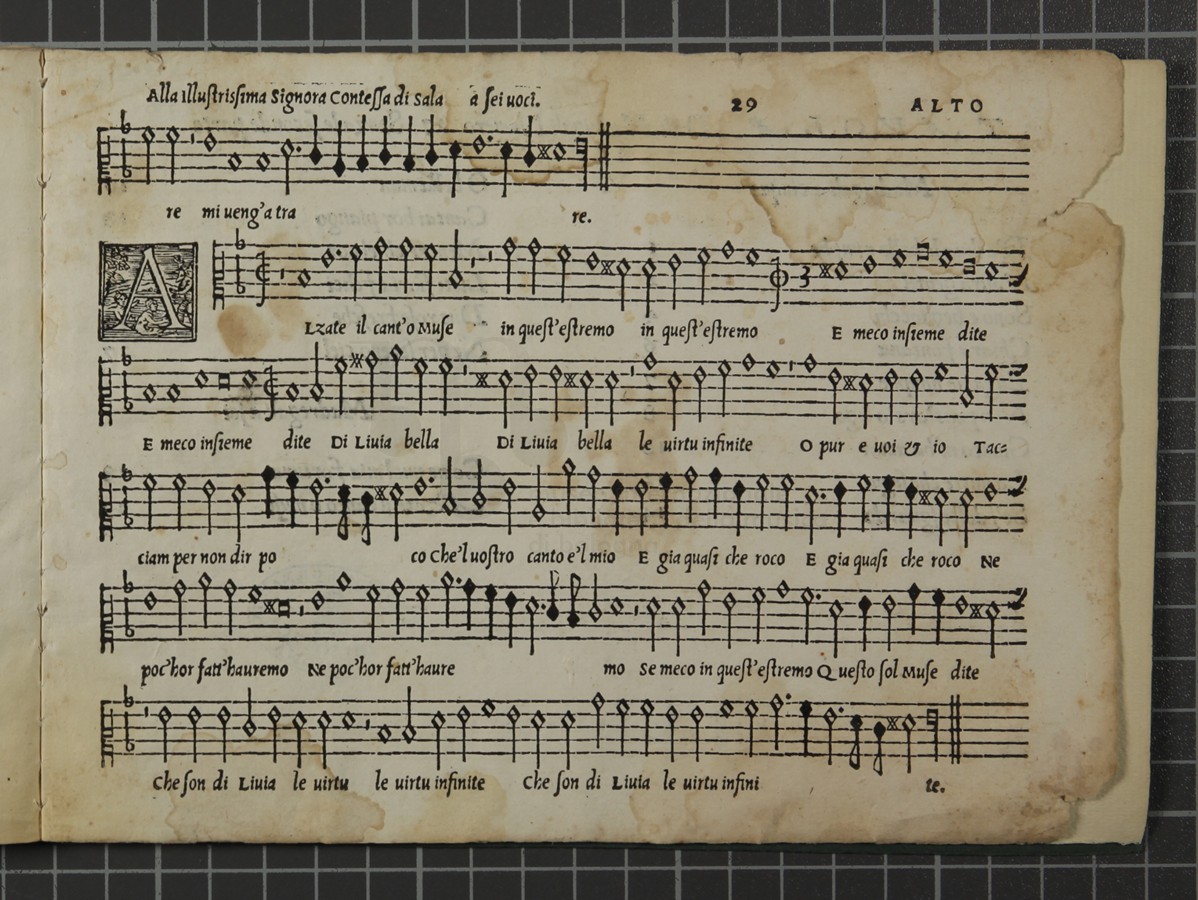 Alla Illustrissima Signora Contessa di Sala a sei uoci. 29 ALTO
re mi ueng'a tra re.
A
Lzate il cant'o Muse in quest'estremo in quest'estremo E meco insieme dite
3
E meco insieme dite Di Liuia bella Di Liuia bella le uirtu infinite O pur e uoi & io Tac=
ciam per non dir po co Che'l uostro canto e'l mio E gia quasi che roco E gia quasi che roco Ne
poc'hor fatt'hauremo Ne poc'hor fatt'haure mo Se meco in quest'estremo Questo sol Muse dite
Che son di Liuia le uirtu le uirtu infinite Che son di Liuia le uirtu infini te.